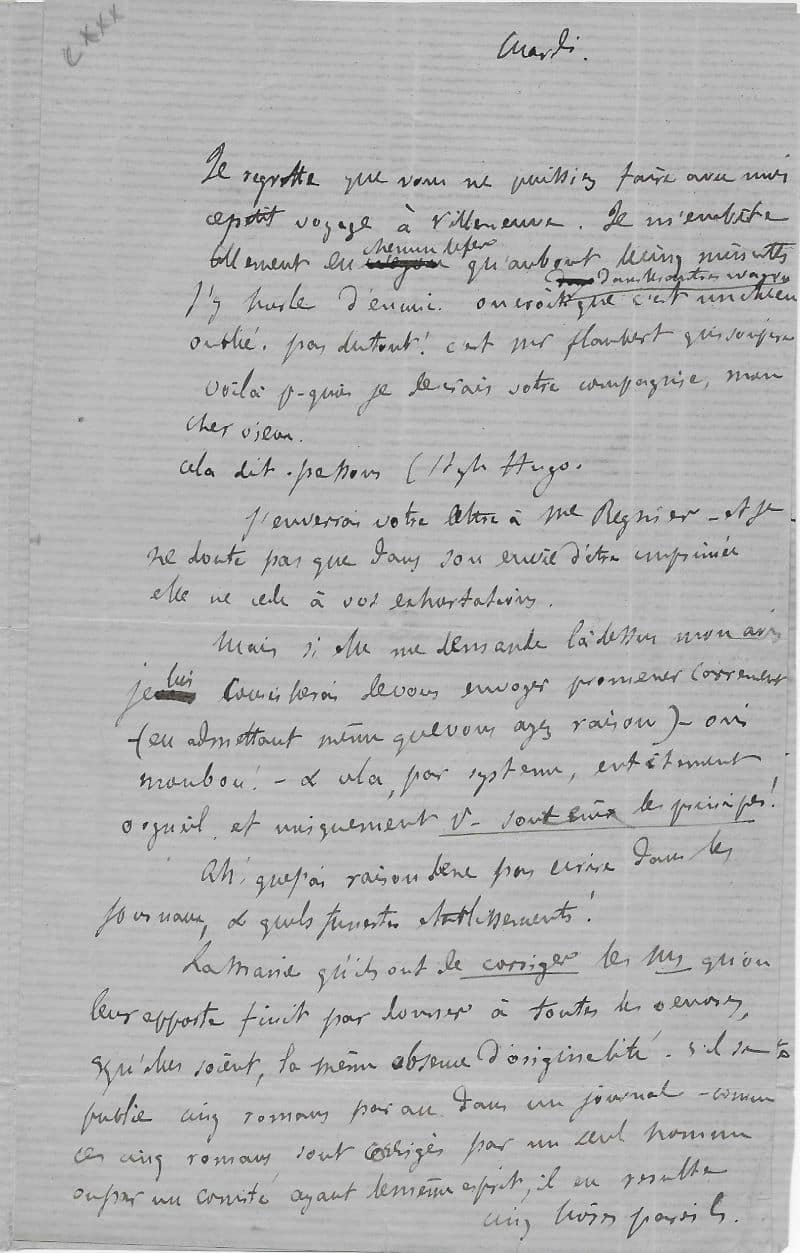 CXXX
Mardi.
Je regrette que vous ne puissiez faire avec moi
ce petit voyage à Villeneuve. Je m'embête
tellement en chemin de fer qu'au bout de cinq minutes
dans les autres wagons
j'y hurle d'ennui. on croit que c'est un chien
oublié. pas du tout! c'est Mr flaubert qui soupire
voilà p-quoi je desirais votre compagnie, mon
cher vieux.
cela dit. passons (Style Hugo.
J'enverrai votre lettre à Me Regnier – et je
ne doute pas que dans son envie d'être imprimée
elle ne cede à vos exhortations.
Mais si elle me demande là dessus mon avis
je lui conseillerai de vous envoyer promener carrement
– (en admettant même que vous ayez raison) – oui
mon bon! – & cela, par systeme, entêtement
orgueil, et uniquement p– soutenir les principes!
Ah! que j'ai raison de ne pas ecrire dans les
journaux, & quels funestes etablissements!
La manie qu'ils ont de corriger les Mss qu'on
leur apporte finit par donner à toutes les oeuvres,
qu'elles soient, la même absence d'originalité. s'il se
publie cinq romans par an dans un journal – comme
ces cinq romans sont corrigés par un seul homme
ou par un comité ayant le même esprit, il en resulte
cinq livres pareils.